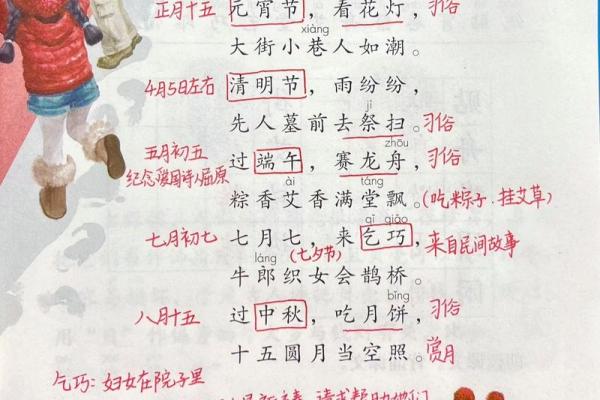 正月十五 元宵节，看花灯，习俗
xiàng
大街小巷人如潮。
4月5日左右 清明节，雨纷纷，
jì
先人墓前去祭扫。习俗
zhōu
五月初五 过端午，赛龙舟，习俗
纪念爱国诗人屈原
ài táng
粽香艾香满堂飘。(吃粽子.挂艾草)
qǐ qiǎo
七月初七 七月七，来乞巧，来自民间故事
láng (七夕节)
牛郎织女会鹊桥。
bǐng
八月十五 过中秋，吃月饼，习俗
十五圆月当空照。赏月
乞巧：妇女在院子里